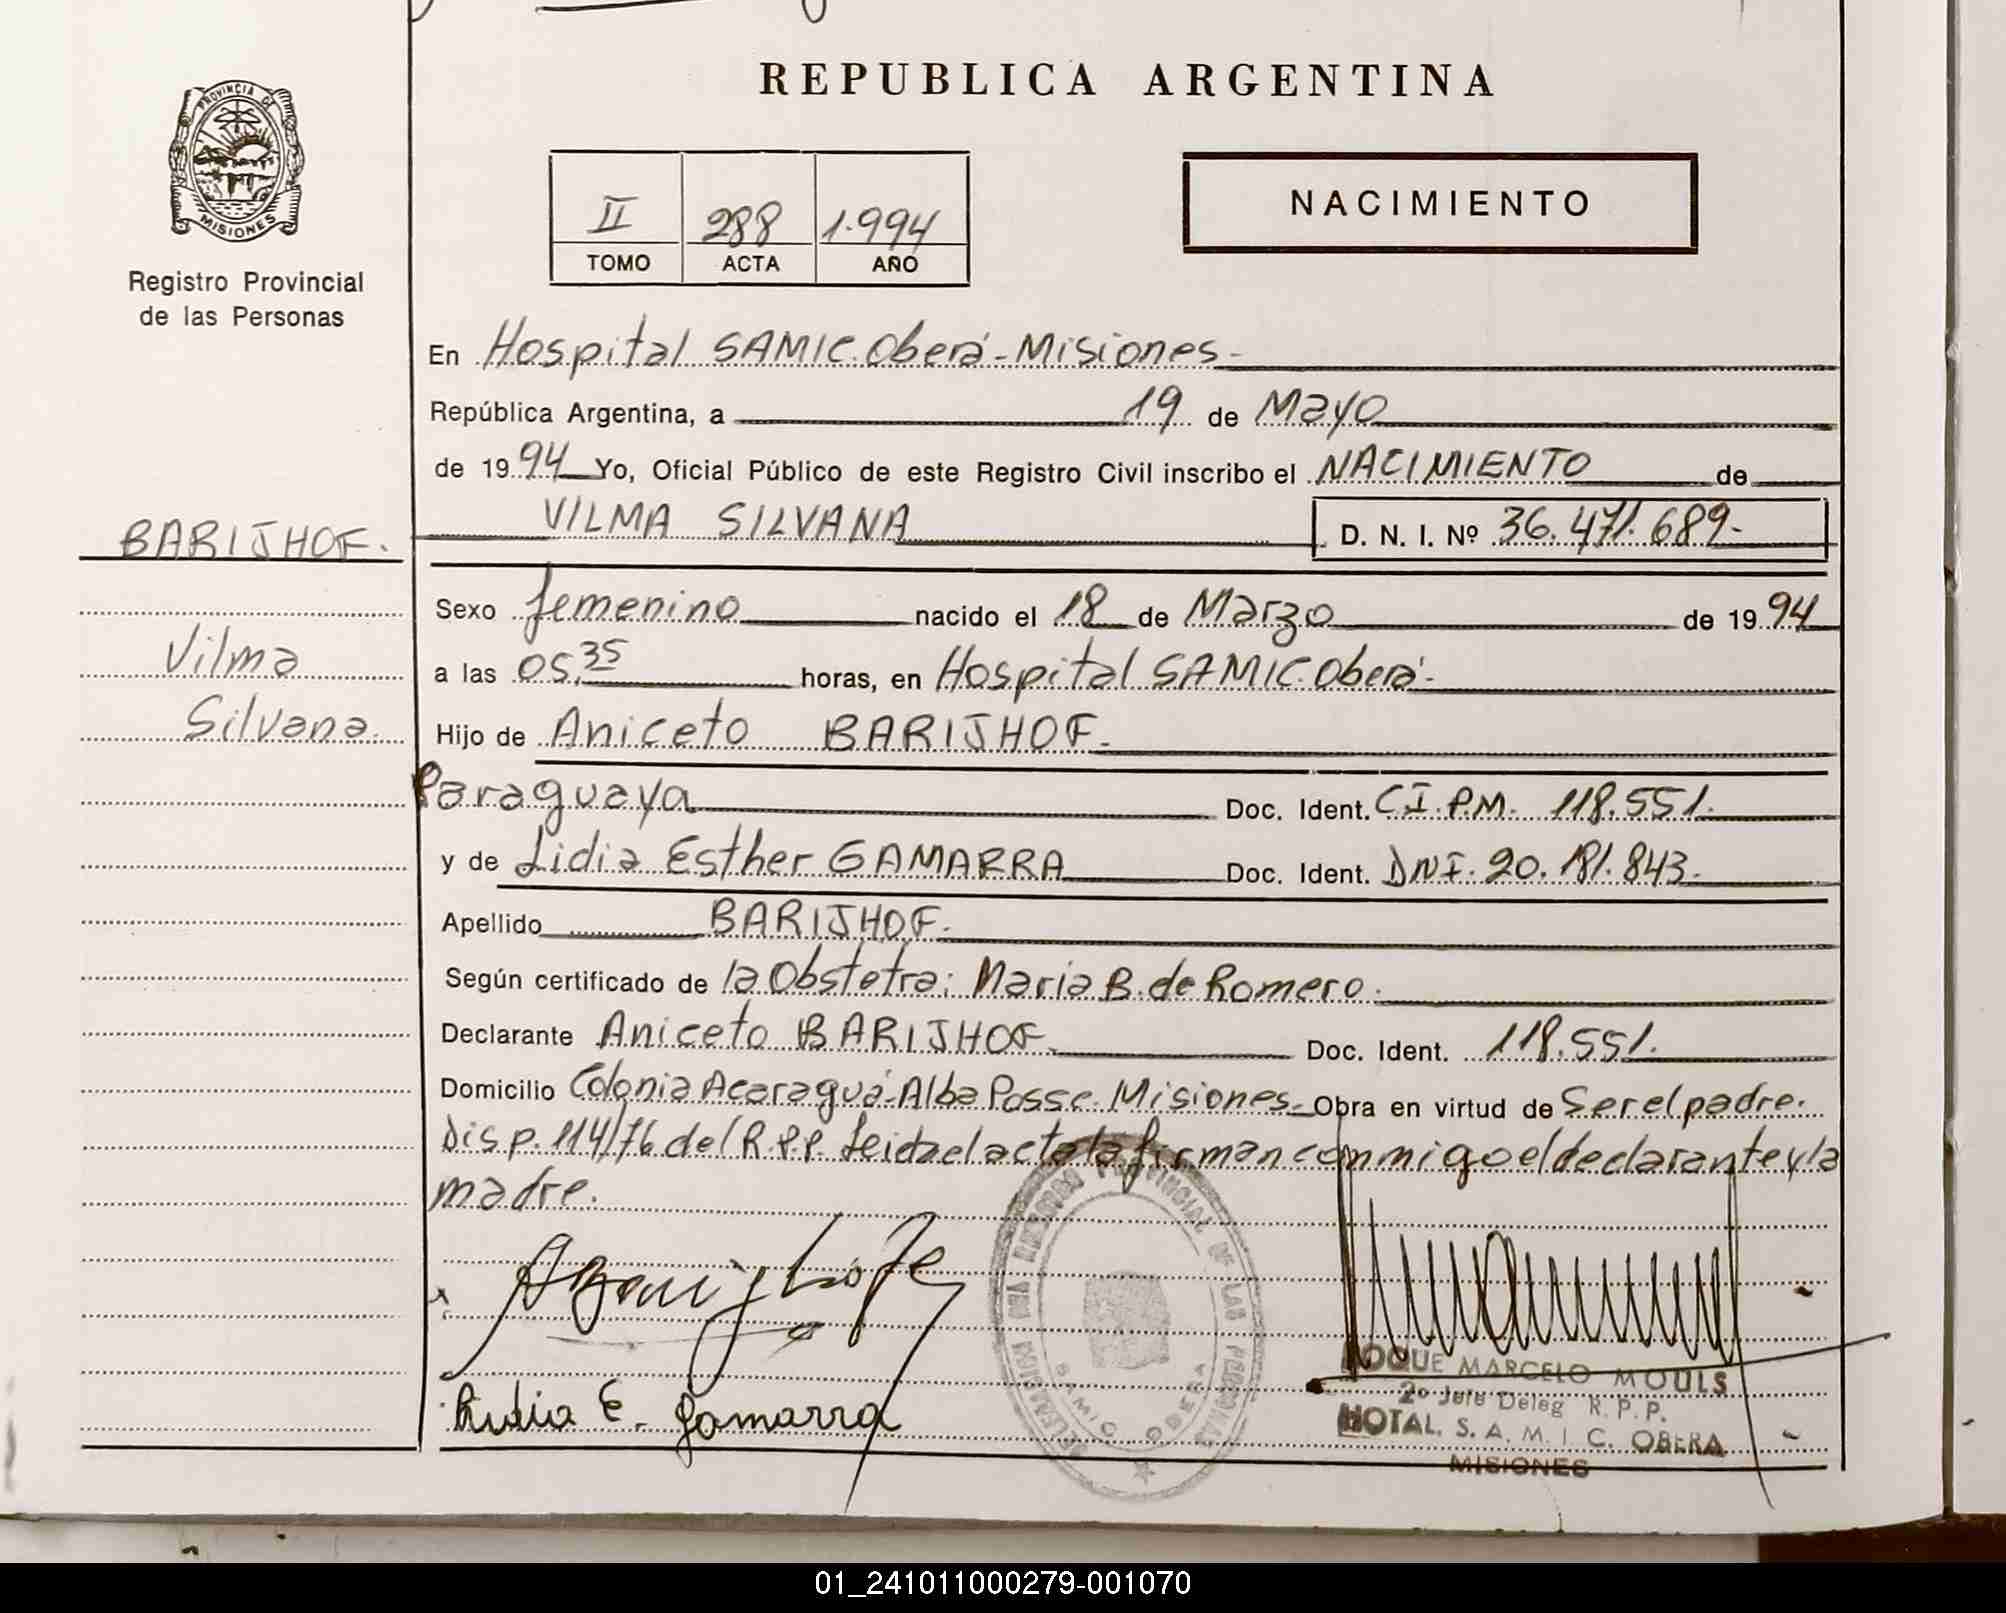 REPUBLICA ARGENTINA
PROVINCIA DE
MISIONES
Registro Provincial
de las Personas
II 288 1.994
TOMO ACTA AÑO
NACIMIENTO
En Hospital SAMIC. Oberá - Misiones -
República Argentina, a 19 de Mayo
de 1994 Yo, Oficial Público de este Registro Civil inscribo el NACIMIENTO de
VILMA SILVANA D. N. I. Nº 36.471.689-
BARIJHOF.
Vilma
Silvana
Sexo femenino nacido el 18 de Marzo de 1994
a las 05,35 horas, en Hospital SAMIC. Oberá -
Hijo de Aniceto BARIJHOF -
Paraguaya Doc. Ident. C.I. P.M. 118.551.
y de Lidia Esther GAMARRA Doc. Ident. DNI. 20.181.843.
Apellido BARIJHOF.
Según certificado de la Obstetra; Maria B. de Romero.
Declarante Aniceto BARIJHOF Doc. Ident. 118.551.
Domicilio Colonia Acaraguá - Alba Posse. Misiones - Obra en virtud de Ser el padre.
Disp. 114/76 del R.P.P. Leida el acta la firman conmigo el declarante y la
madre.
Lidia E. Gamarra
DELEGACION REGISTRO PROVINCIAL DE LAS PERSONAS
SAMIC OBERA
ROQUE MARCELO MOULS
2º Jefe Deleg R. P. P.
HOTAL. S. A. M. I. C. OBERA
MISIONES
01_241011000279-001070